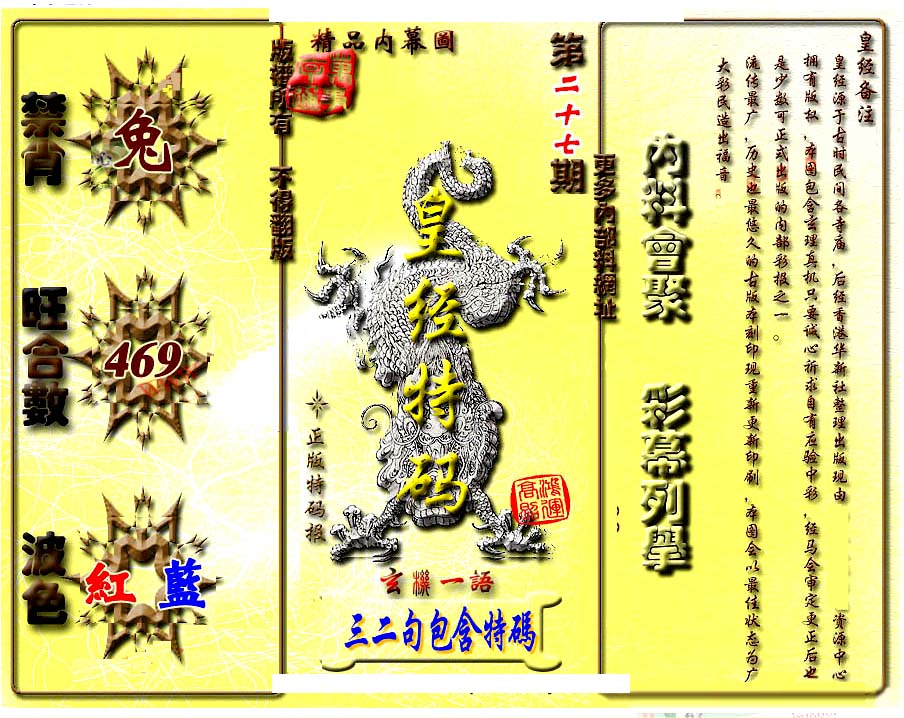 精品内幕圖
第二十七期
版權所有 不得翻版
更多內部料網址
禁肖
兔
旺合數
469
波色
紅 藍
皇经特码
正版特码报
鴻運高照
玄機一語
三二句包含特碼
内料會聚
彩幕列舉
皇经备注
皇经源于古时民间各寺庙，后经香港华新社整理出版现由 资源中心
拥有版权，本图包含玄理真机只要诚心祈求自有应验中彩，经马会审定更正后也
是少数可正式出版的内部彩报之一。
流传最广，历史也最悠久的古版本刻印现重新更新印刷，本图会以最佳状态为广
大彩民造出福音